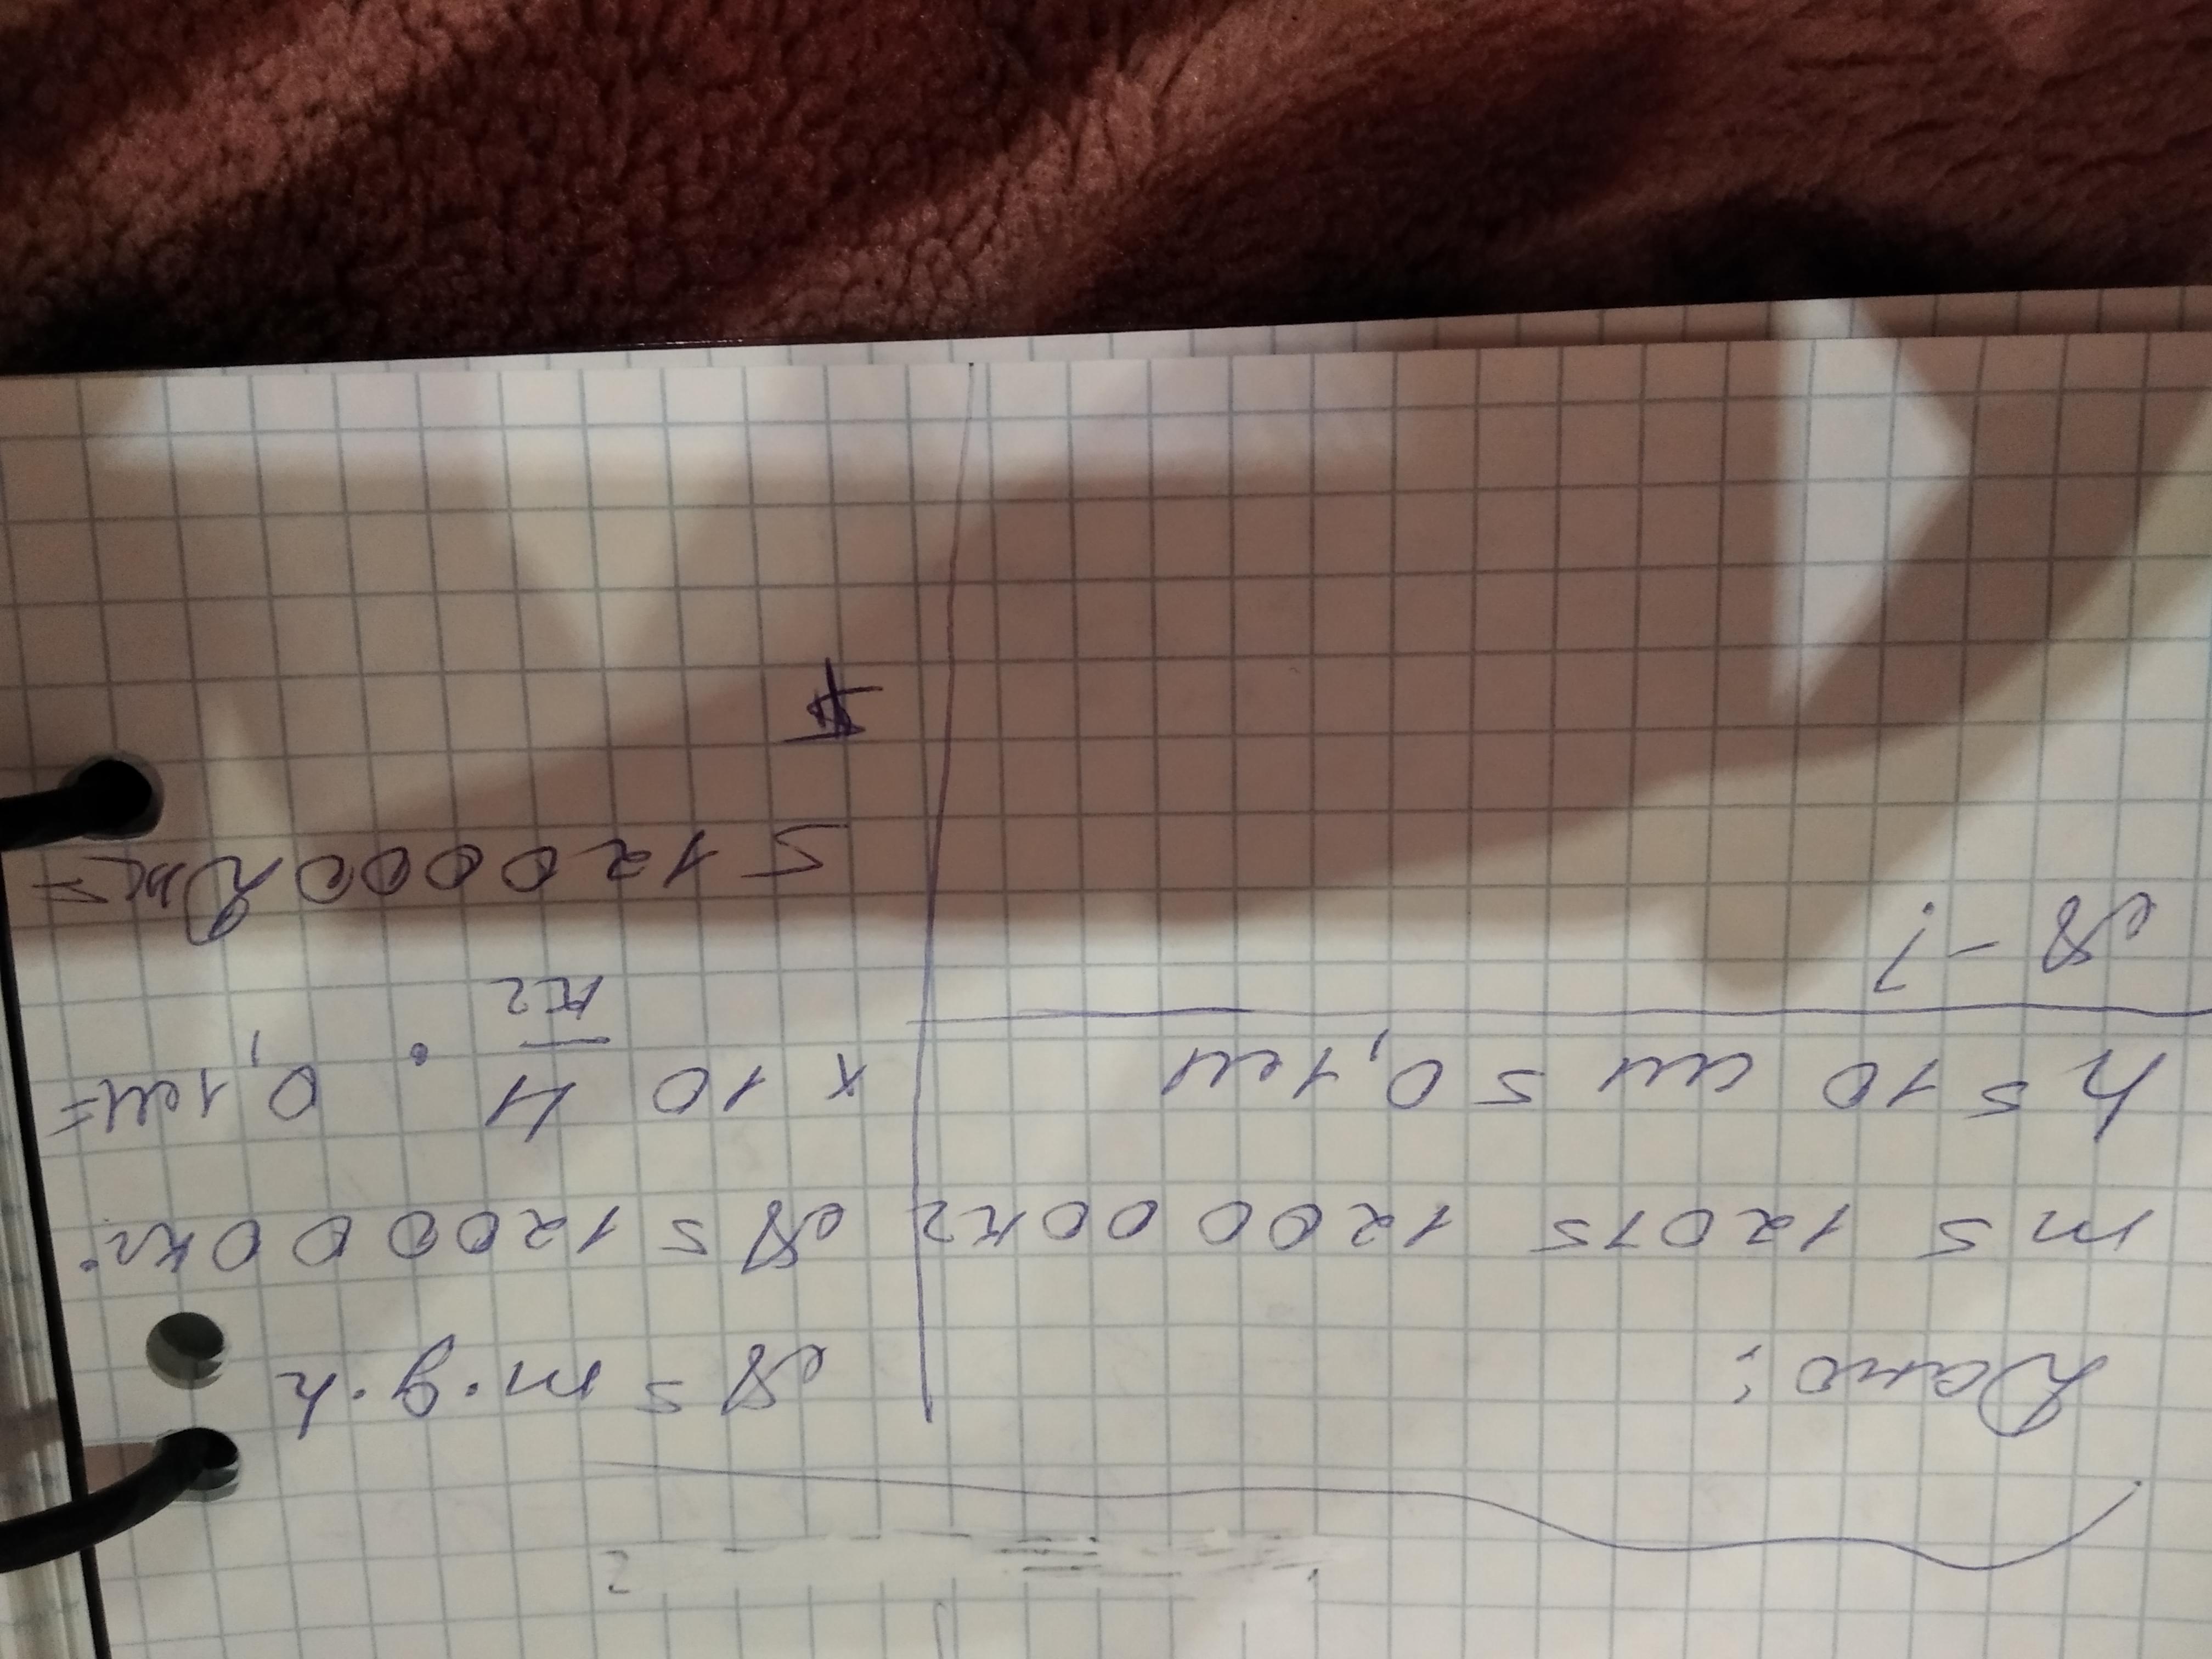 Дано:
m = 120т = 120000кг
h = 10 см = 0,1м
A - ?
A = m·g·h
A = 120000кг·
× 10 Н/кг · 0,1м=
= 120000Дж=